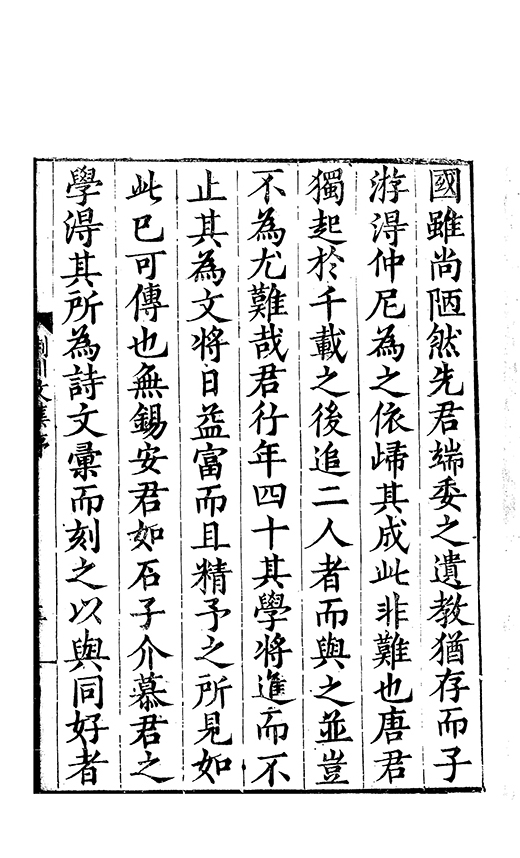 國雖尚陋然先君端委之遺教猶存而子
游得仲尼為之依歸其成此非難也唐君
獨起於千載之後追二人者而與之並豈
不為尤難哉君行年四十其學將進而不
止其為文將日益富而且精予之所見如
此已可傳也無錫安君如石子介慕君之
學得其所為詩文彙而刻之以與同好者